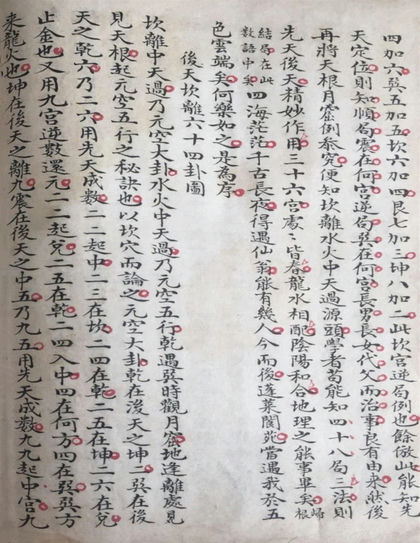 四加六巽五加五坎六加四艮七加三坤八加二此坎宮逆局例也餘倣此能知先
天定位則知順局震在何宮逆局巽在何宮長男長女代父而治事良有由來然後
再將天根月窟例參究便知坎離水火中天過源頭學者苟能知四十八局三法則
先天後天精妙作用三十六宮處處皆春龍水相配陰陽和合地理之能事畢矣根歸
結局在此
數語中矣四海茫茫千古長夜得遇仙翁能有幾人今而後蓬萊閬苑當遇我於五
色雲端矣何樂如之是為序
後天坎離六十四卦圖
坎離中天過乃元空大卦水火中天過乃元空五行乾遇巽時觀月窟地逢離處見
見天根起元空五行之秘訣也以坎穴而論之元空大卦乾在後天之坤二巽在後
天之乾六乃二六用先天成數二二起中一三在坎二四在乾二五在坤二六在兌
止金也又用九宮逆數還元一二起兌一五在乾二四入中四在何方四在巽巽方
來龍火也坤在後天之離九震在後天之中五乃九五用先天成數九九起中宮九